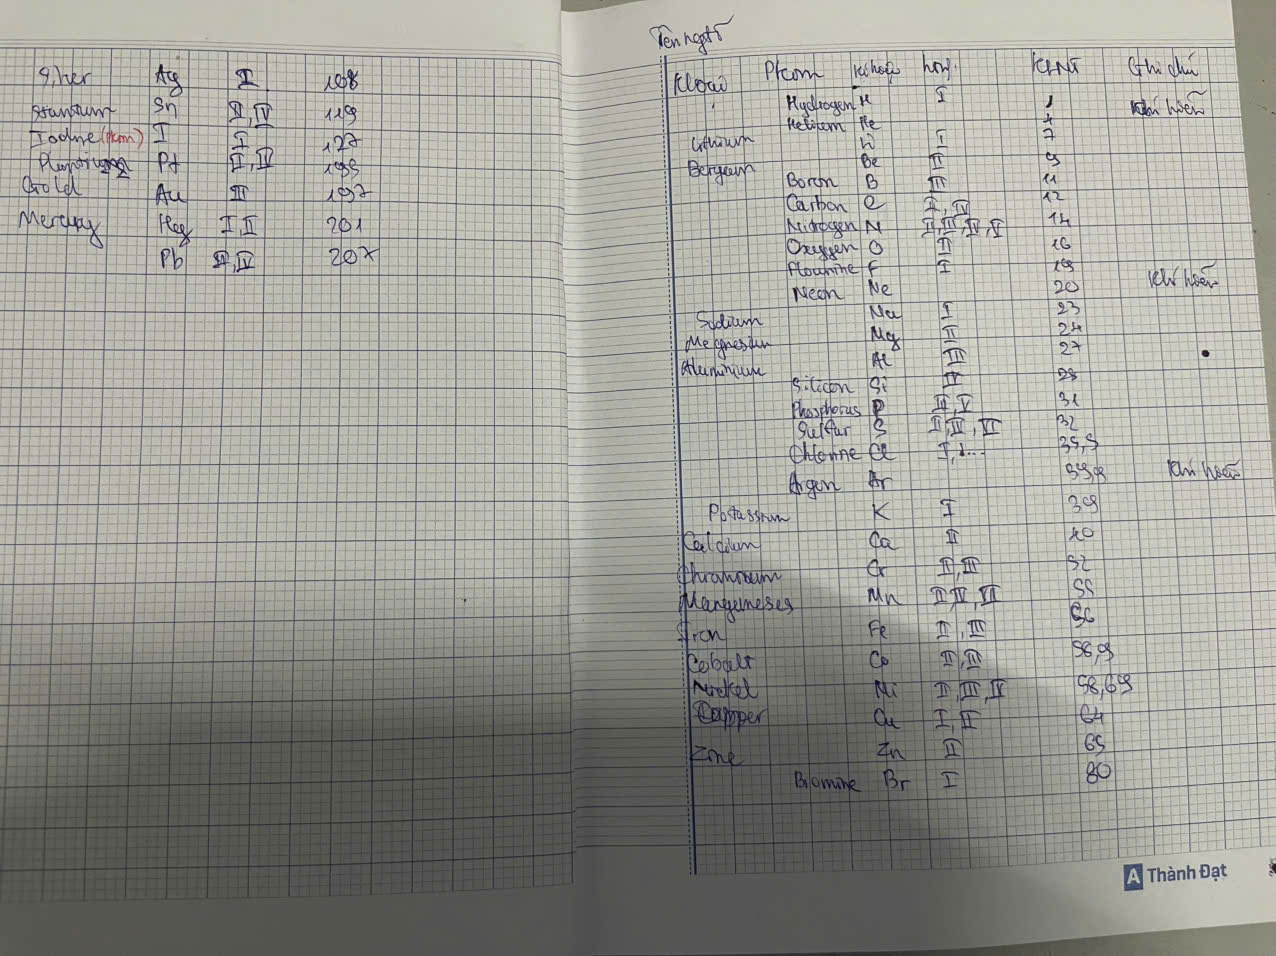 Silver Ag I 108
Sn II, IV 119
Iodine (Pkim) I I 127
Pt II, IV 195
Gold Au III 197
Mercury Hg I, II 201
Pb II, IV 207
Tên ngtố
K loại P kim Kí hiệu htrị KLNT Ghi chú
Hydrogen H I 1
Khí hiếm
Helium He 4
Lithium Li I 7
Be II 9
Boron B III 11
Carbon C II, IV 12
Nitrogen N II, III, IV, V 14
Oxygen O II 16
F I 19
Neon Ne 20 Khí hiếm
Sodium Na I 23
Magnesium Mg II 24
Aluminium Al III 27
Silicon Si IV 28
Phosphorus P III, V 31
Sulfur S II, IV, VI 32
Chlorine Cl I,... 35,5
Argon Ar 39,9 Khí hiếm
Potassium K I 39
Calcium Ca II 40
Chromium Cr II, III 52
Manganeses Mn II, IV, VII 55
Iron Fe II, III 56
Cobalt Co II, III 58,9
Nickel Ni II, III, IV 58,69
Copper Cu I, II 64
Zine Zn II 65
Bromine Br I 80
A Thành Đạt